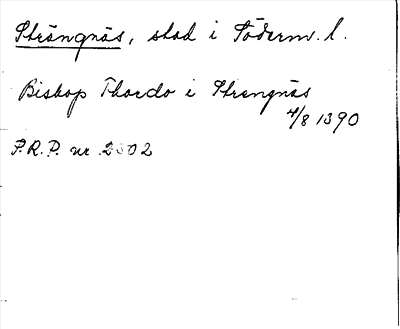 Strängnäs, stad i Söderm. l.
Biskop Thordo i Strengnäs
4/8 1390
P.R.P. nr 2502